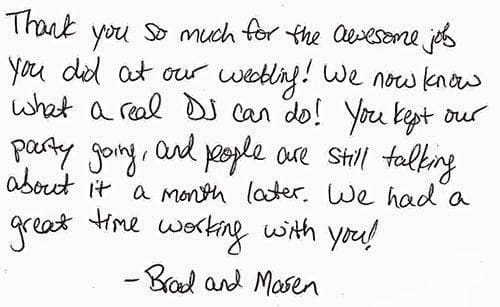 Thank you so much for the awesome job
you did at our wedding! We now know
what a real DJ can do! You kept our
party going, and people are still talking
about it a month later. We had a
great time working with you!
- Brad and Maren